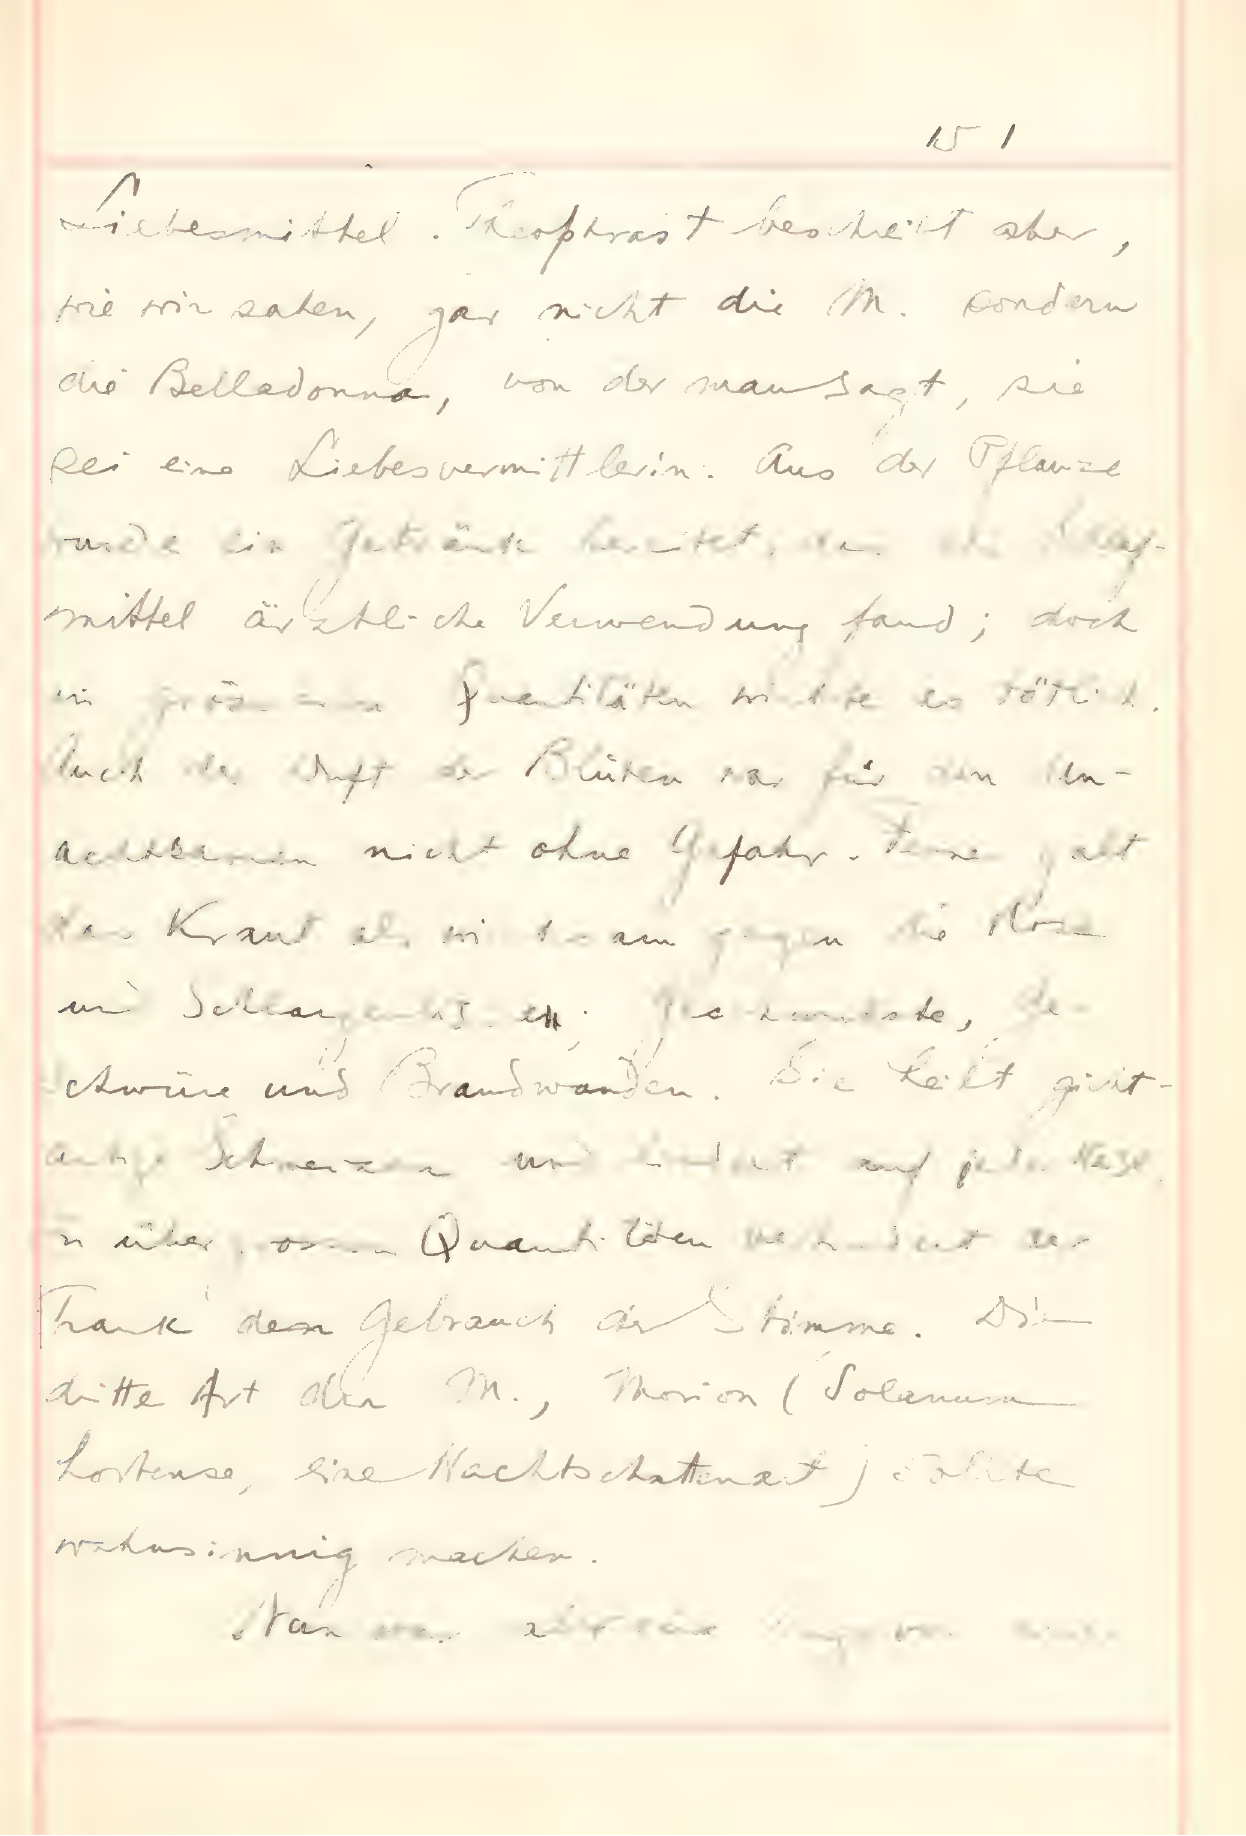 151
Liebesmittel. Theophrast beschreibt aber,
wie wir sahen, gar nicht die M. sondern
die Belladonna, von der man sagt, sie
sei eine Liebesvermittlerin. Aus der Pflanze
wurde ein Getränk bereitet, das als Schlaf-
mittel ärztliche Verwendung fand; doch
in grösseren Quantitäten wirkte es tötlich.
Auch der Duft der Blüten war für den Un-
achtsamen nicht ohne Gefahr. Ferner galt
das Kraut als wirksam gegen die Rose
und Schlangenbisse, Geschwulste, Ge-
schwüre und Brandwunden. Sie heilt gicht-
artige Schmerzen und lindert auf jede Weise.
In übergrossen Quantitäten verhindert der
Trank den Gebrauch der Stimme. Die
dritte Art der M., Morion (Solanum
hortense, eine Nachtschattenart) sollte
wahnsinnig machen.
Nun war aber eine